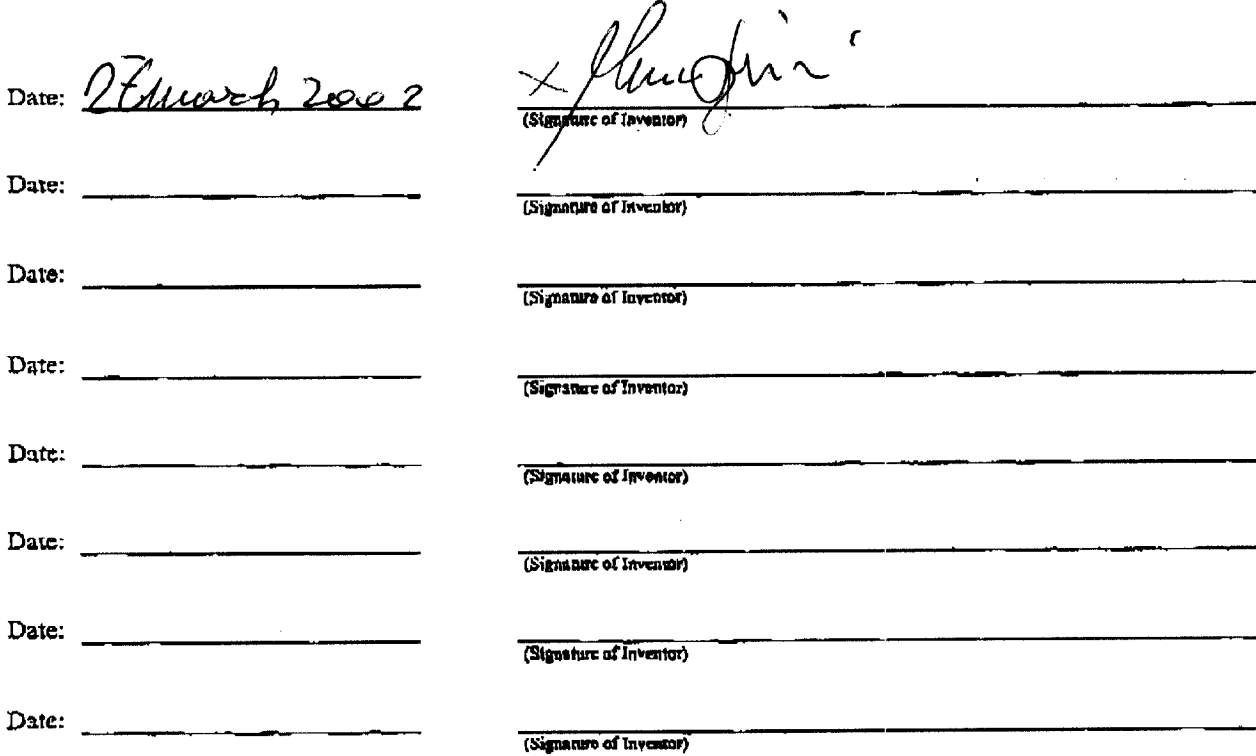 Date: 27 march 2002 X
(Signature of Inventor)
Date:
(Signature of Inventor)
Date:
(Signature of Inventor)
Date:
(Signature of Inventor)
Date:
(Signature of Inventor)
Date:
(Signature of Inventor)
Date:
(Signature of Inventor)
Date:
(Signature of Inventor)